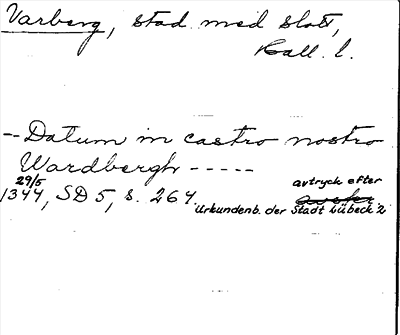 Varberg, stad med slott,
Hall. l.
-- Datum in castro nostro
Wardbergh -----
29/5 avtryck efter
1344, SD 5, s. 264.
Urkundenb. der Stadt Lübeck 2